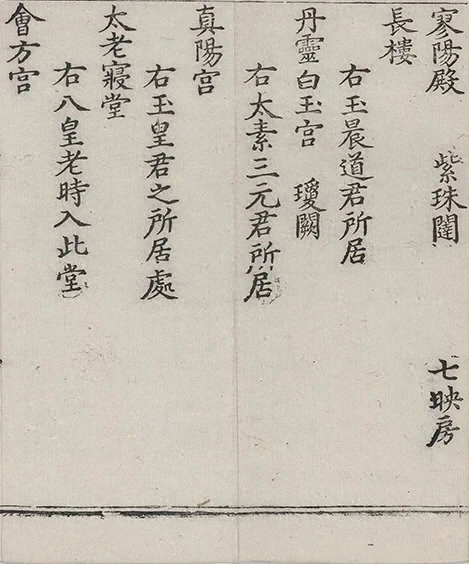 寥陽殿 紫珠闥 七映房
長樓
右玉晨道君所居
丹靈白玉宫 璦闕
右太素三元君所居
真陽宫
右玉皇君之所居處
太老寢堂
右八皇老時入此堂
會方宫